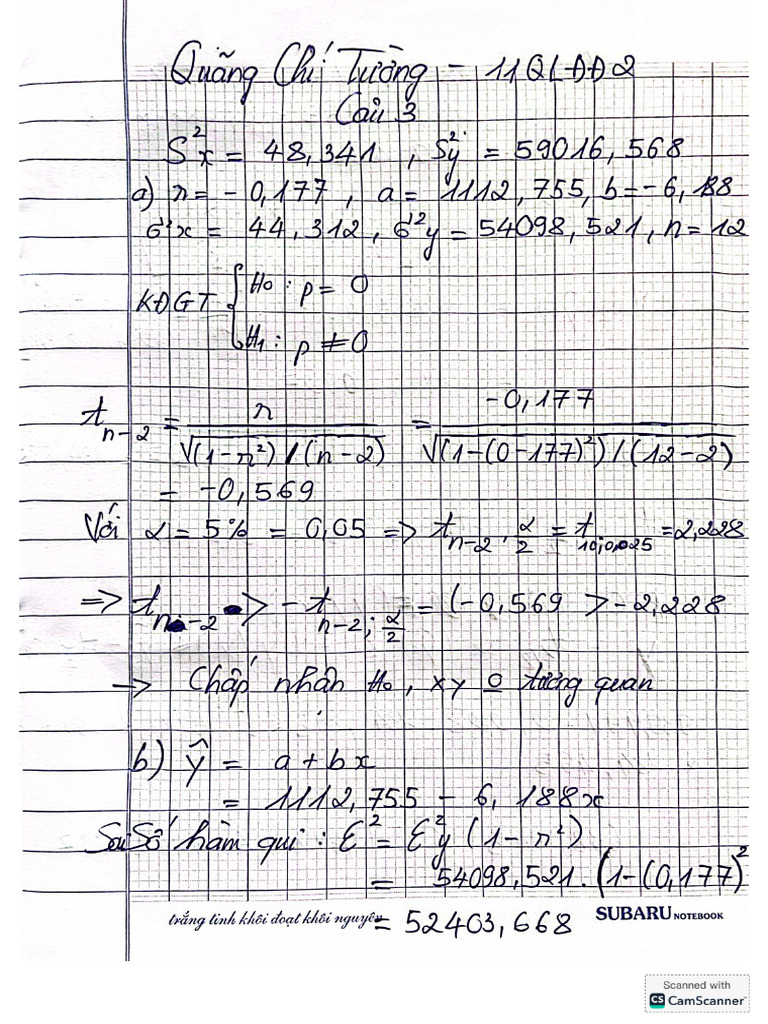 Quãng Chí Tường - 11QLĐĐ2
Câu 3
S²x = 48,341 , S²y = 59016,568
a) r = -0,177 , a = 1112,755, b = -6,188
σ²x = 44,312, σ²y = 54098,521, n = 12
KĐGT { H₀ : ρ = 0
H₁ : ρ ≠ 0
t_{n-2} = r / √((1-r²)/(n-2)) = -0,177 / √((1-(0-177)²)/(12-2))
= -0,569
Với α = 5% = 0,05 => t_{n-2; α/2} = t_{10;0,025} = 2,228
=> t_{n-2} > -t_{n-2; α/2} = (-0,569 > -2,228
-> Chấp nhận H₀, xy 0 tương quan
b) ŷ = a + bx
= 1112,755 - 6,188x
Sai Số hàm qui : Ɛ² = Ɛ²y (1 - r²)
= 54098,521.(1-(0,177)²
trắng tinh khôi đoạt khôi nguyên = 52403,668 SUBARU NOTEBOOK
Scanned with
CS CamScanner